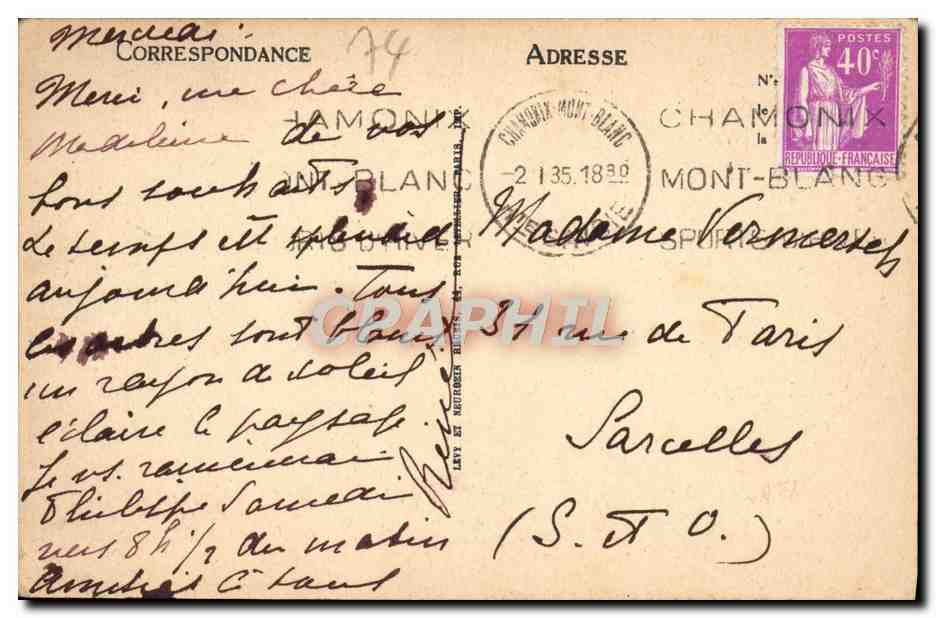 Mercredi.
CORRESPONDANCE
74
ADRESSE
Merci, ma chère
Madeleine de vos
bons souhaits
Le temps est splendide
aujourd'hui. Tous
les arbres sont blancs
un rayon de soleil
éclaire le paysage
Je vs. ramènerai
Philippe Samedi
vers 8h 1/2 du matin
Amitiés à tous
LEVY ET NEURDEIN REUNIS, 44, RUE LETELLIER, PARIS, IMP.
POSTES
40c
REPUBLIQUE-FRANÇAISE
N°
le
la
CHAMONIX-MONT-BLANC
-2 1 35. 18 30
HAMONIX
ONT-BLANC
D'HIVER
CHAMONIX
MONT-BLANC
SPORTS
Madame
31 rue de Paris
Sarcelles
(S. et O.)
CPAPHIL